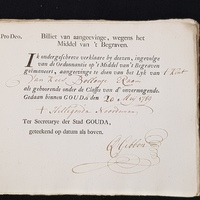 Pro Deo.
Billet van aangeevinge, wegens het
Middel van 't Begraven.
Ik ondergeschreve verklaare by deezen, ingevolge
van de Ordonnantie op 't Middel van 't Begraven
geëmaneert, aangeevinge te doen van het Lyk van 't Kint
van
als gehoorende onder de Classe van d' onvermogende.
Gedaan binnen GOUDA, den 20 May 178
Ter Secretarye der Stad GOUDA,
geteekend op datum als boven.